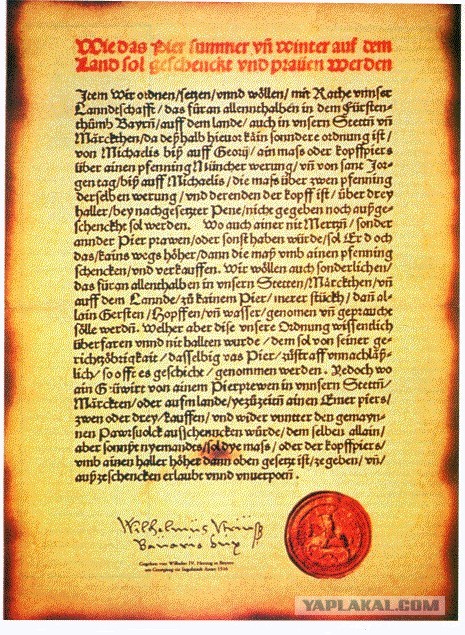 Wie das Pier summer vñ winter auf dem
Land sol geschenckt vnd praüen werden
Item Wir ordnen/setzen/vnnd wöllen/mit Rathe vnnser
Lanndtschafft/das für an allennthalben in dem Fürsten-
thümb Bayrñ/auff dem lande/auch in vnsern Stettñ vñ
Märckthen/da deßhalb hieuor kain sonndere ordnung ist/
von Michaelis biß auff Georij/ain mass oder kopffpiers
über ainen pfenning Müncher werung/vñ von sant Jor-
gen tag/biß auff Michaelis/die mass über zwen pfenning
derselben werung/vnd derenden der kopff ist/über drey
haller/bey nachgesetzter Pene/nicht gegeben noch außge-
schenckht sol werden. Wo auch ainer nit Mertzñ/sonder
annder Pier prawen/oder sonst haben würde/sol Er doch
das/kains wegs höher/dann die maß vmb ainen pfenning
schencken/vnd verkauffen. Wir wöllen auch sonderlichen/
das für an allenthalben in vnsern Stetten/Märckthen/vñ
auff dem Lannde/zů kainem Pier/merer stückh/dañ al-
lain Gersten/Hopffen/vñ wasser/genomen vñ gepraucht
sölle werdñ. Welher aber dise vnsere Ordnung wissentlich
überfaren vnnd nit hallten wurde/dem sol von seiner ge-
richtzöbrigkait/dasselbig vas Pier/zůstraff vnnachläß-
lich/so offt es geschicht/genommen werden. Jedoch wo
ain Güwirt von ainem Pierprewen in vnnsern Stettñ/
Märckten/oder aufm lande/yezůzeitñ ainen Emer piers/
zwen oder drey/kauffen/vnd wider vnntter den gemayn-
nen Pawrsuolck ausschenncken würde/dem selben allain/
aber sonnßt nyemandes/sol dye mass/oder der kopffpiers/
vmb ainen haller höher dann oben gesetzt ist/ze geben/vñ/
außzeschencken erlaubt vnnd vnuerpotñ.
Gegeben von Wilhelm IV. Herzog in Bayern
am Georgitag zu Ingolstadt Anno 1516
YAPLAKAL.COM